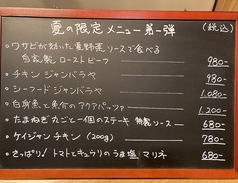 夏の限定メニュー第一弾 (税込)
○ワサビが効いた夏野菜ソースで食べる
自家製ローストビーフ 980-
○チキン ジャンバラヤ 980-
○シーフード ジャンバラヤ 1.080-
○白身魚と魚介のアクアパッツァ 1.200-
○たまねぎまるごと一個のステーキ 特製ソース 680-
○ケイジャンチキン (200g) 780-
○さっぱり! トマトとキュウリのうま塩マリネ 680-